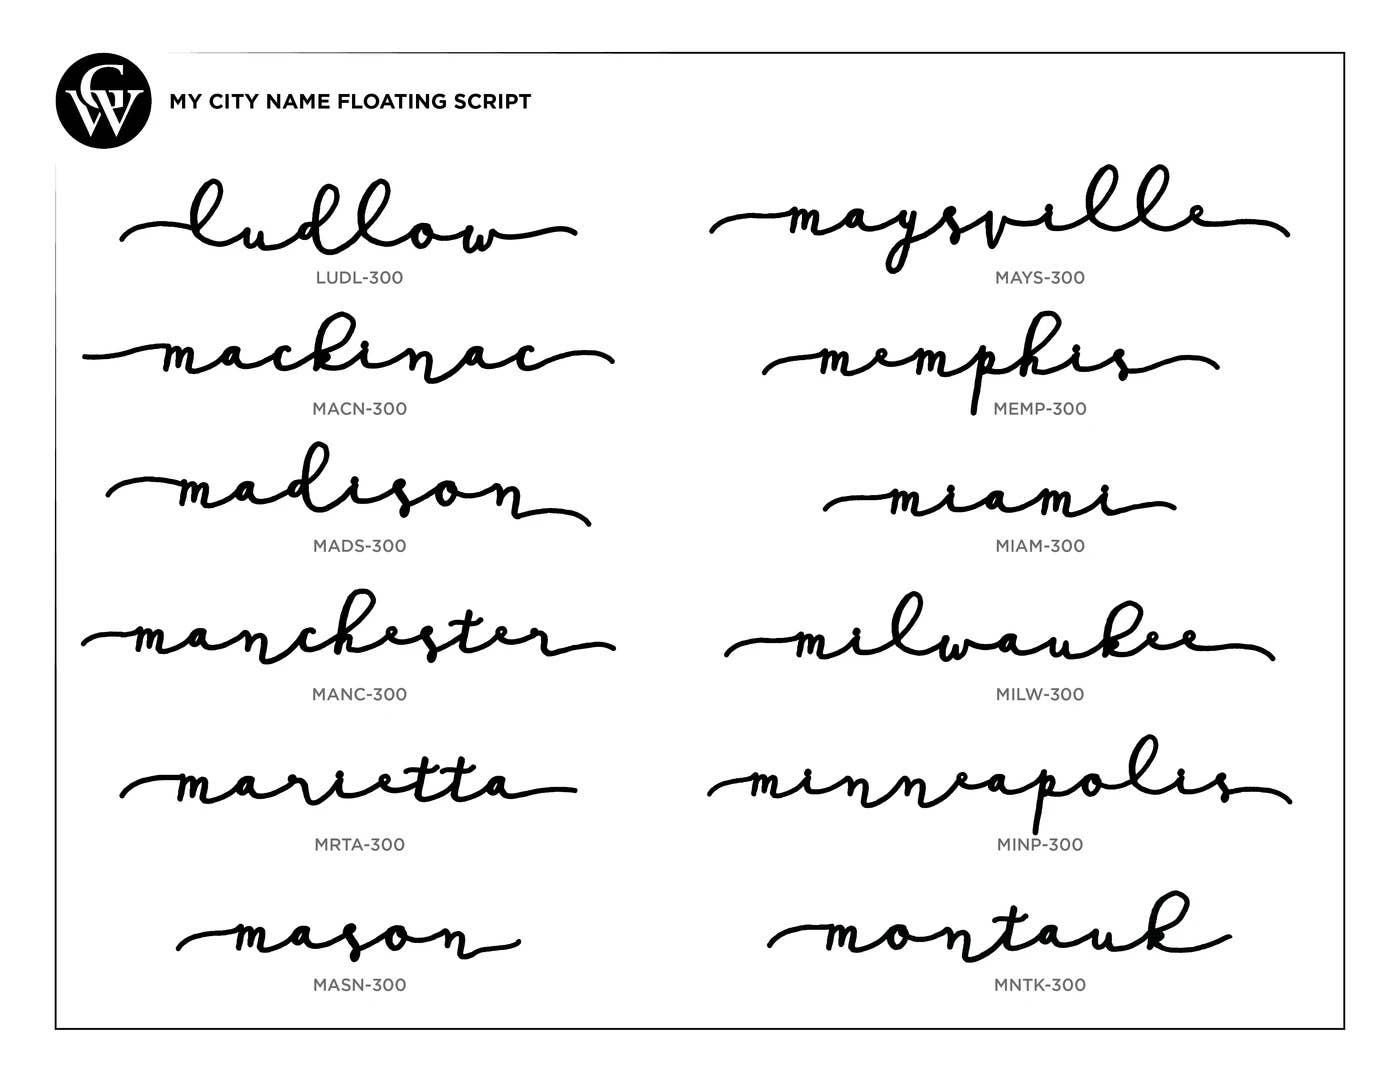 CW
MY CITY NAME FLOATING SCRIPT
ludlow
LUDL-300
maysville
MAYS-300
mackinac
MACN-300
memphis
MEMP-300
madison
MADS-300
miami
MIAM-300
manchester
MANC-300
milwaukee
MILW-300
marietta
MRTA-300
minneapolis
MINP-300
mason
MASN-300
montauk
MNTK-300